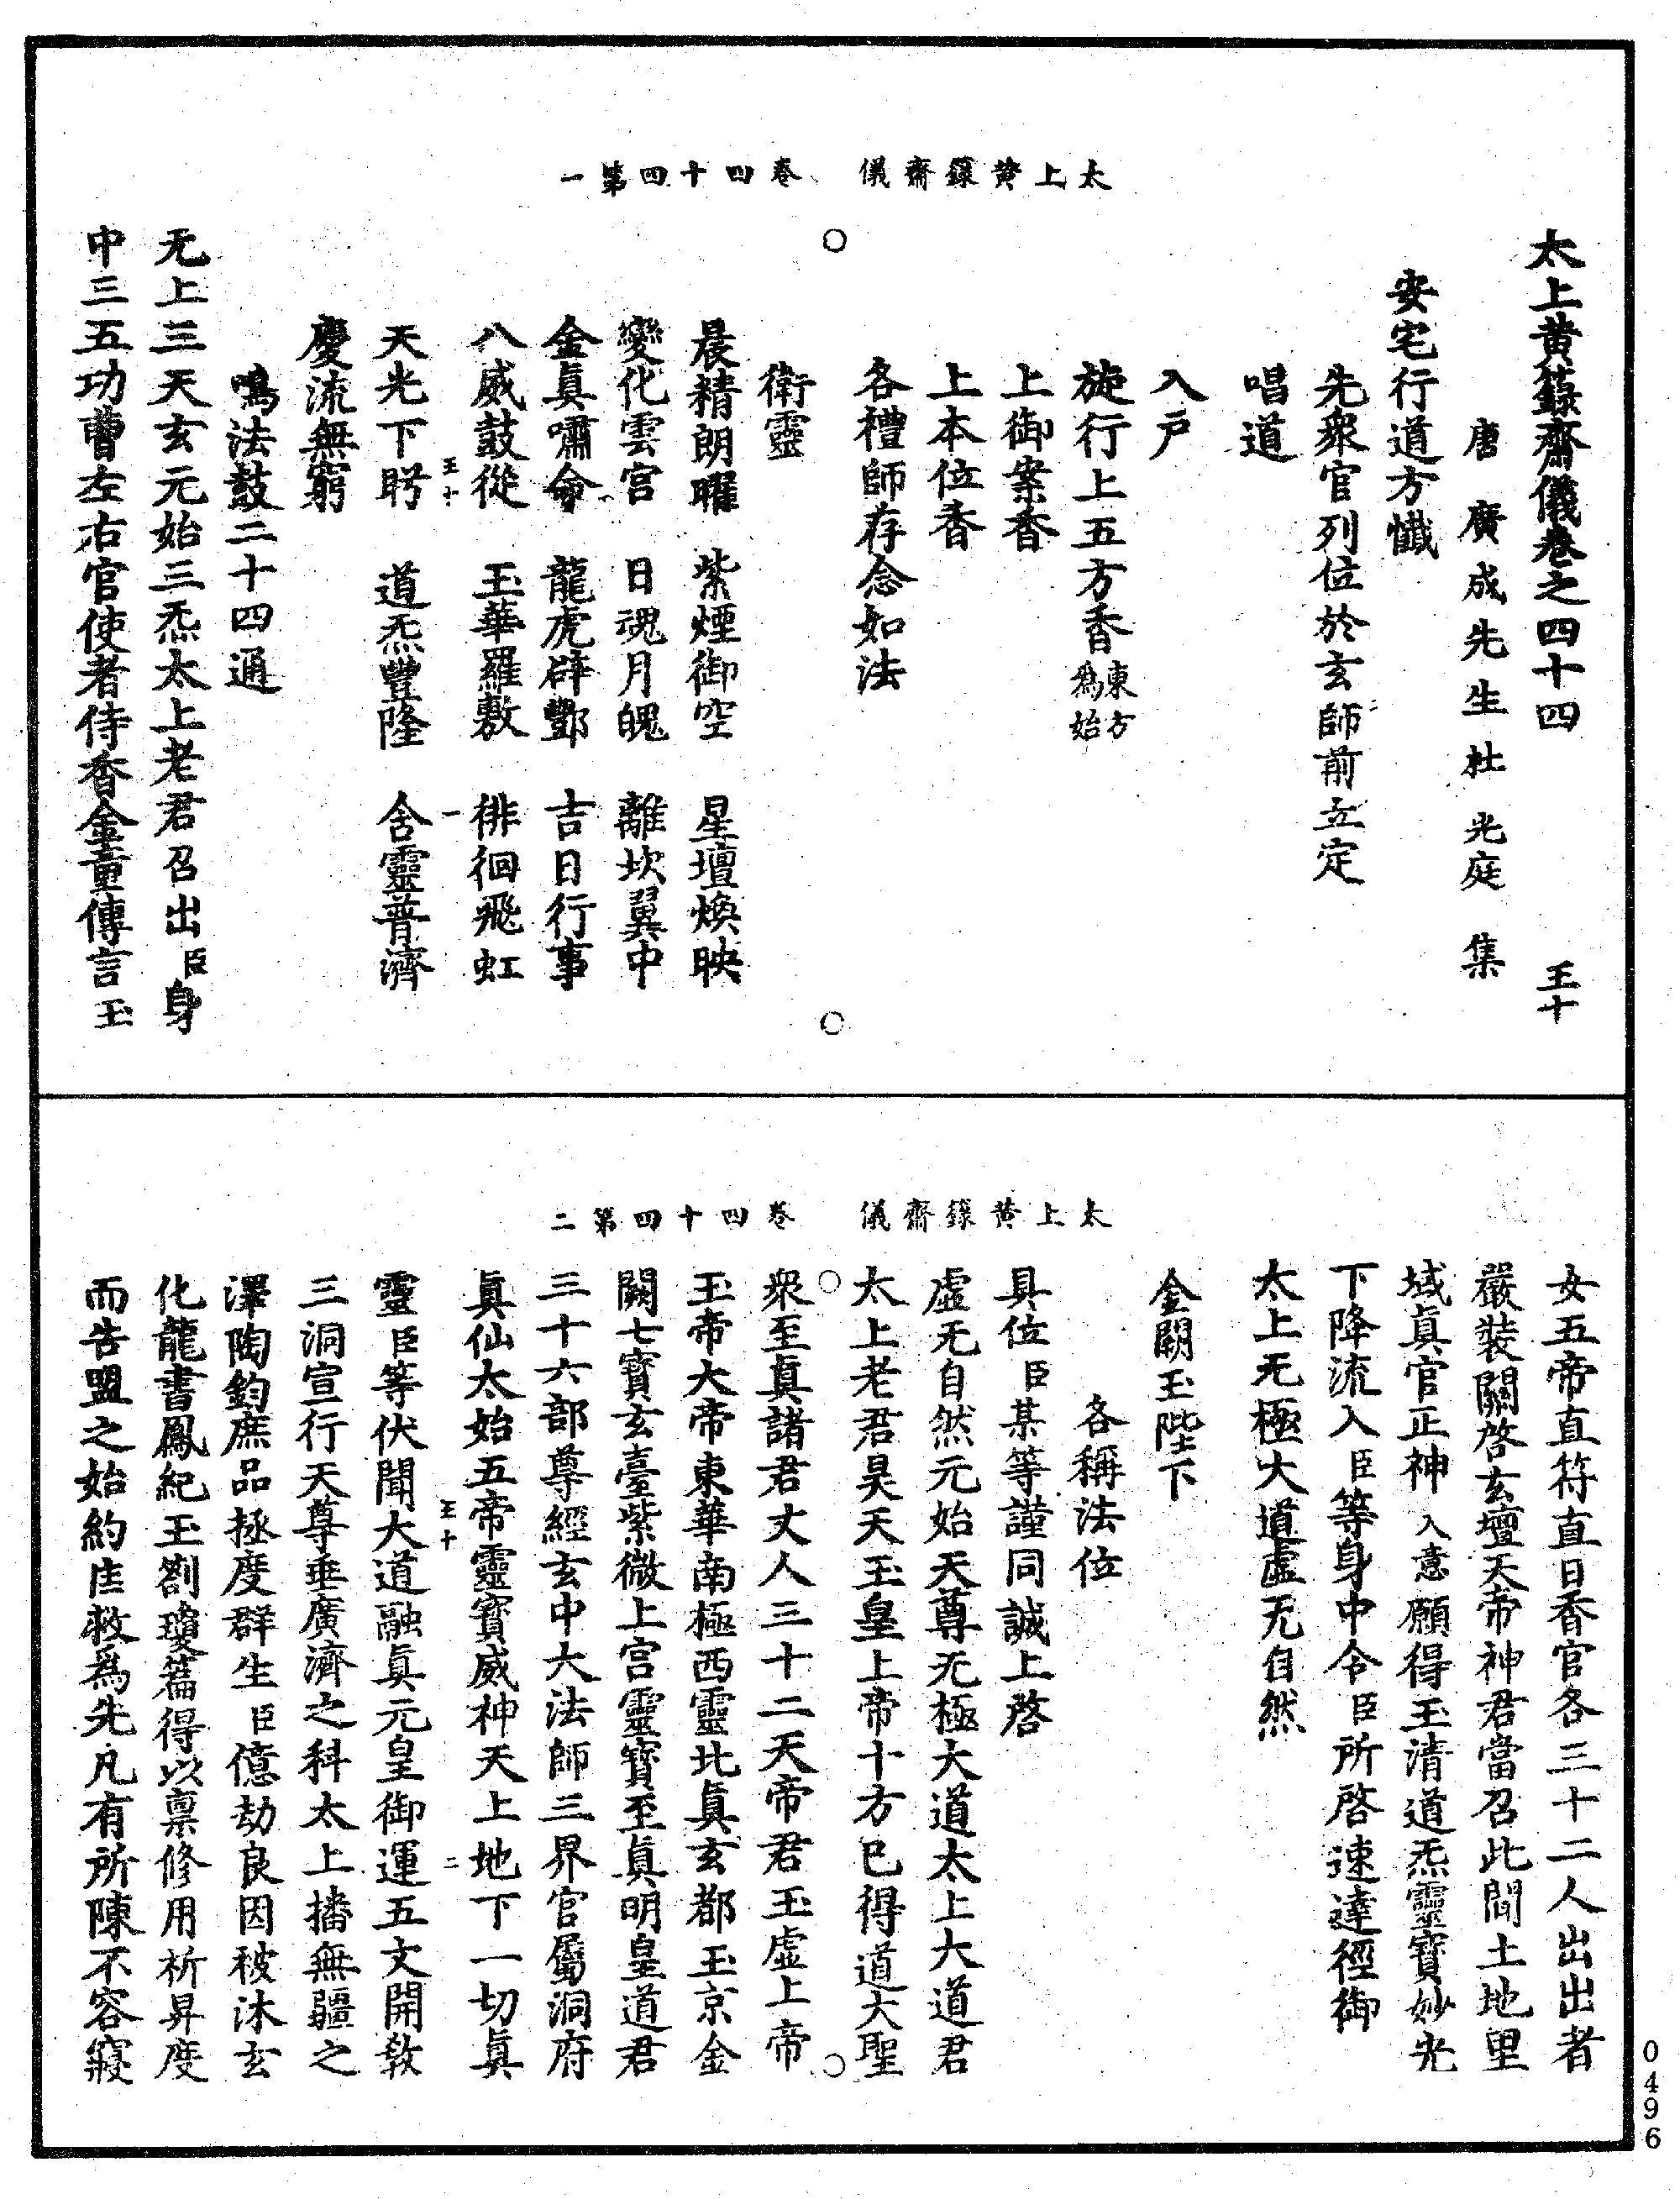 太上黄籙齋儀　卷四十四第一
太上黄籙齋儀卷之四十四　王十
唐廣成先生杜光庭集
安宅行道方懺
先衆官列位於玄師前立定
唱道
入戶
旋行上五方香東方爲始
上御案香
上本位香
各禮師存念如法
衛靈
晨精朗曜　紫煙御空　星壇煥映
變化雲宫　日魂月魄　離坎翼中
金眞嘯命　龍虎辟酆　吉日行事
八威鼓從　玉華羅敷　徘徊飛虹
王十　一
天光下眄　道炁豐隆　含靈普濟
慶流無窮
鳴法鼓二十四通
无上三天玄元始三炁太上老君召出臣身
中三五功曹左右官使者侍香金童傳言玉
太上黄籙齋儀　卷四十四第二
女五帝直符直日香官各三十二人出出者
嚴裝關啓玄壇天帝神君當召此間土地里
域眞官正神入意願得玉清道炁靈寶妙光
下降流入臣等身中令臣所啓速達徑御
太上无極大道虚无自然
金闕玉陛下
各稱法位
具位臣某等謹同誠上啓
虚无自然元始天尊无極大道太上大道君
太上老君昊天玉皇上帝十方已得道大聖
衆至眞諸君丈人三十二天帝君玉虚上帝
玉帝大帝東華南極西靈北眞玄都玉京金
闕七寶玄臺紫微上宫靈寶至眞明皇道君
三十六部尊經玄中大法師三界官屬洞府
眞仙太始五帝靈寶威神天上地下一切眞
王十　二
靈臣等伏聞大道融眞元皇御運五文開敎
三洞宣行天尊垂廣濟之科太上播無疆之
澤陶鈞庶品拯度群生臣億劫良因被沐玄
化龍書鳳紀玉劄瓊篇得以稟修用祈昇度
而告盟之始約庄救爲先凡有所陳不容寢
0496